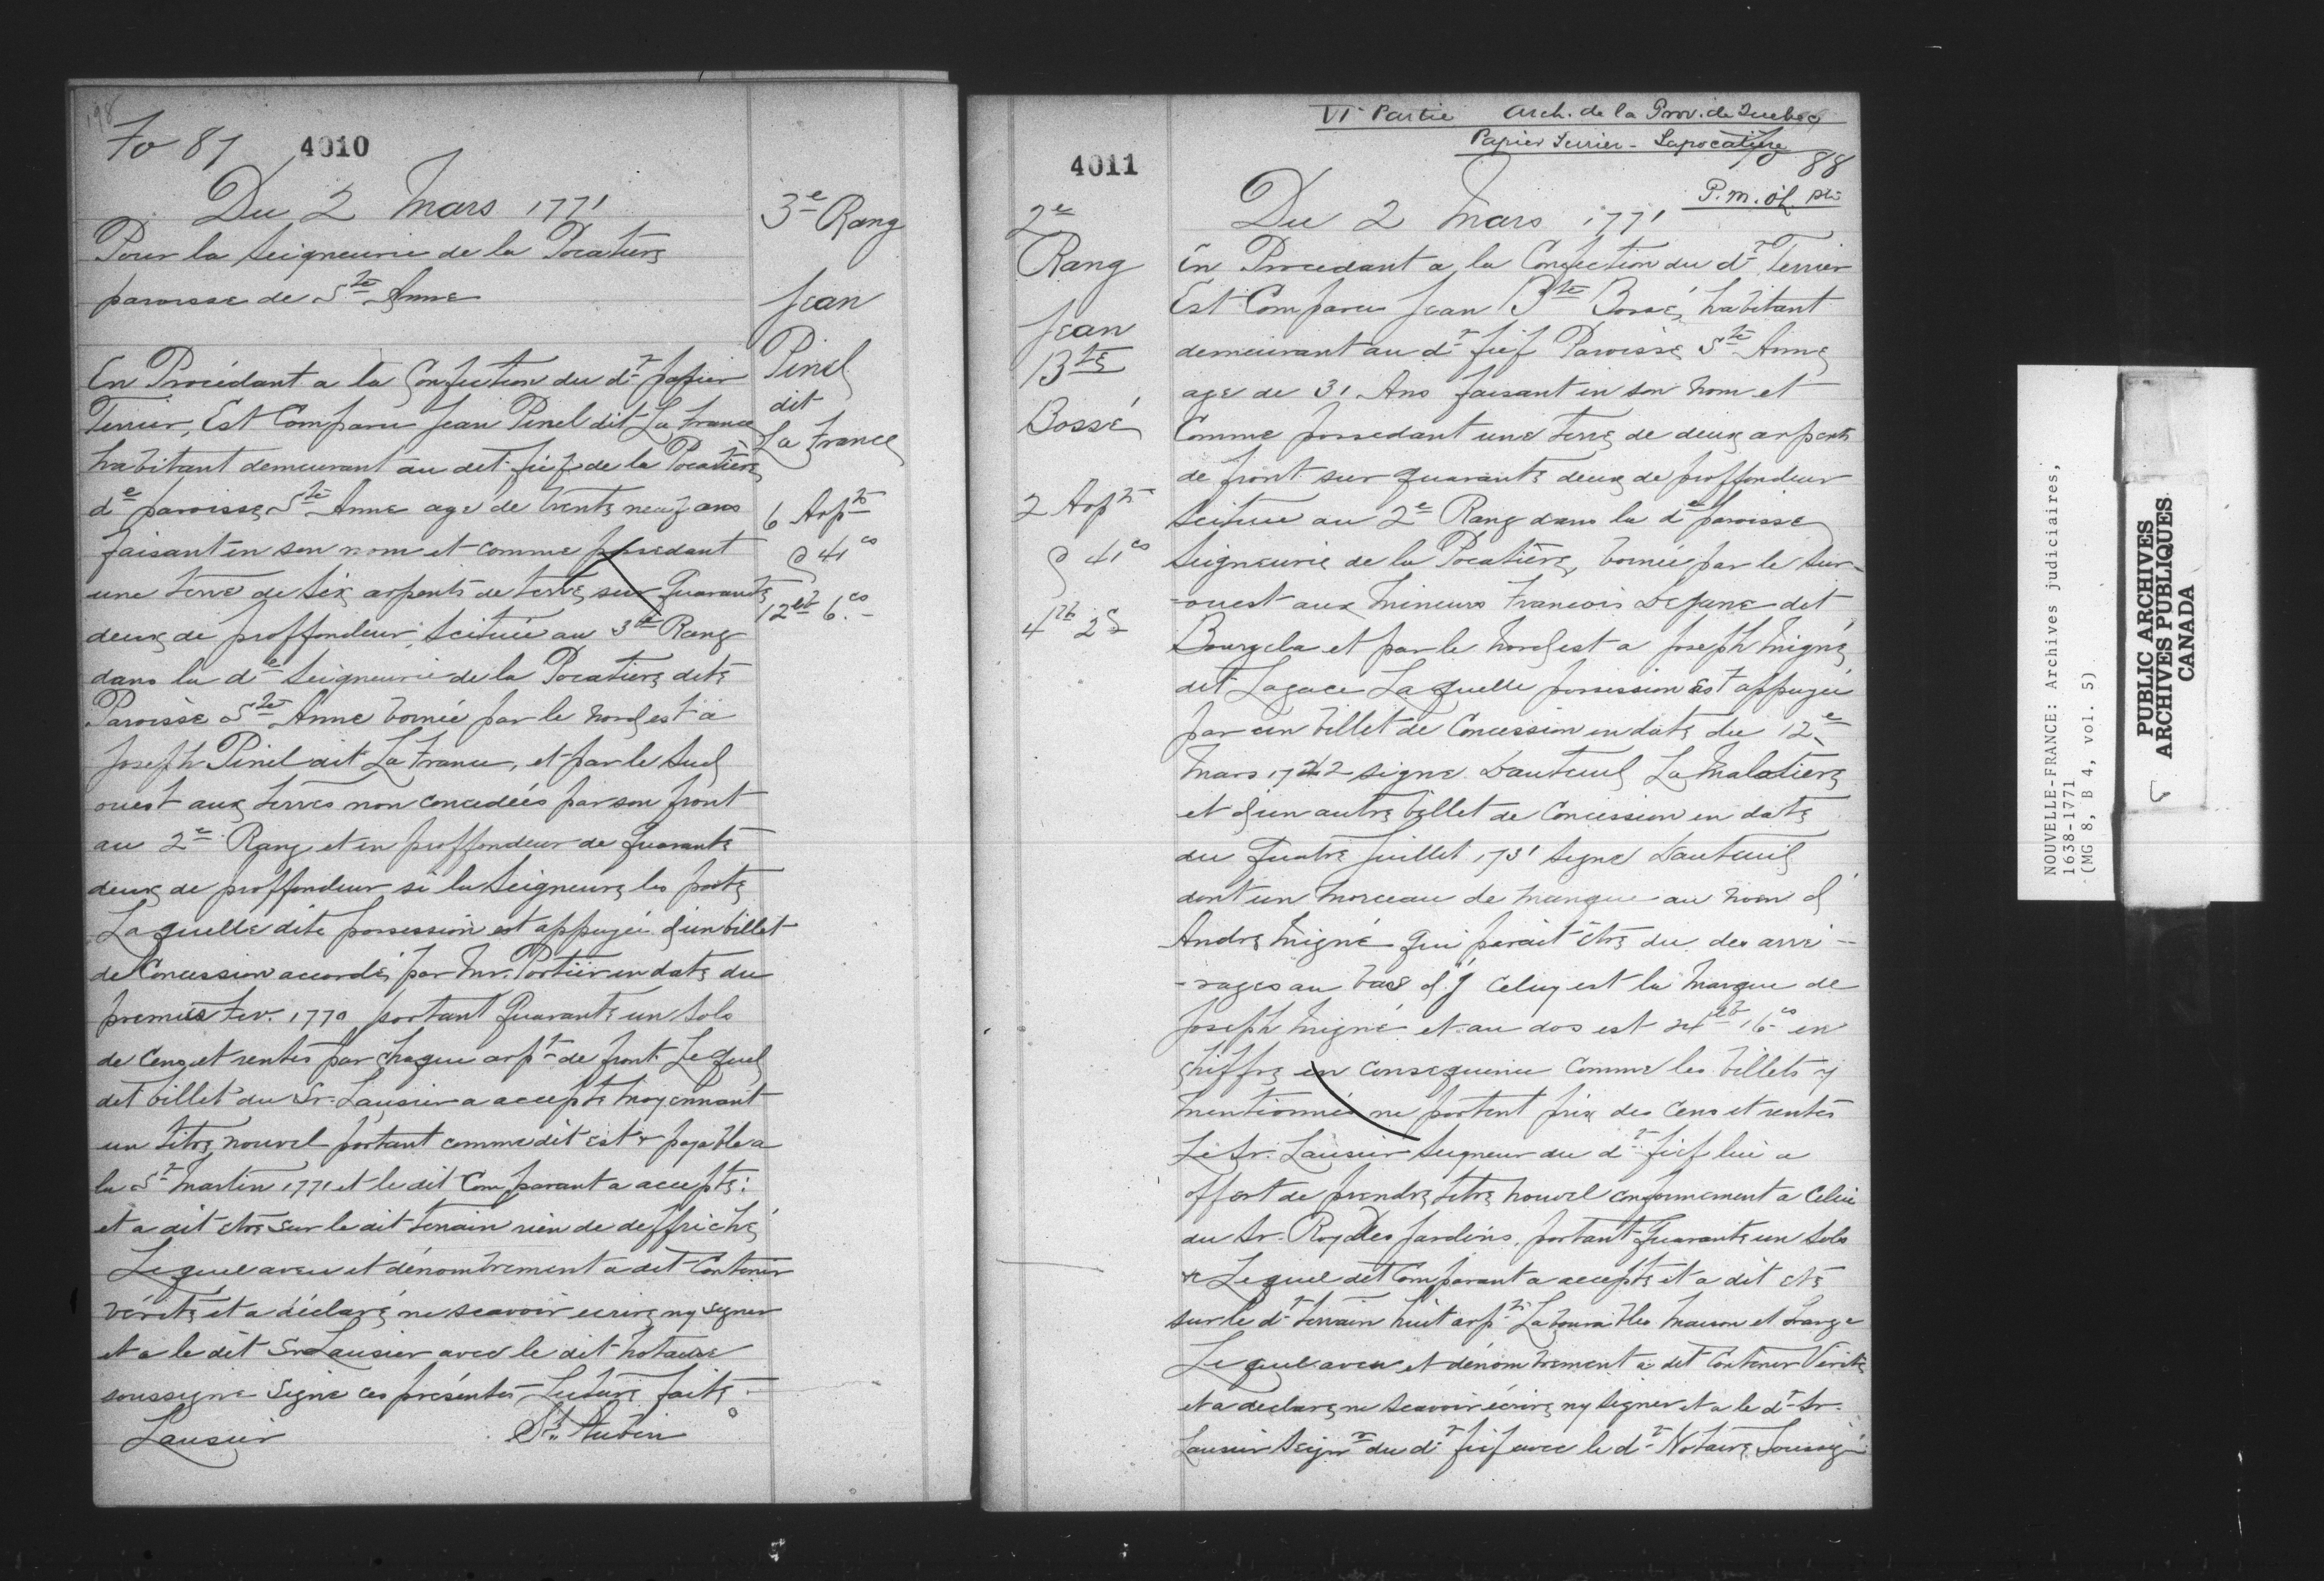 198
Fo 87 4010
Du 2 Mars 1771
Pour la Seigneurie de la Pocatiere
paroisse de Ste Anne
En Procédant a la Confection du dt papier
Terrier, Est Comparu Jean Pinel dit La france
habitant demeurant au dit fief de la Pocatière
de paroisse Ste Anne agé de trente neuf ans
faisant en son nom et comme possedant
une terre de Six arpents de terre, sur Quarante
deux de proffondeur, Scituée au 3e Rang
dans la de Seigneurie de la Pocatiere dite
Paroisse Ste Anne bornée par le nord est a
Joseph Pinel dit La france, et par le Sud
ouest aux terres non concedées par son front
au 2e Rang et en proffondeur de Quarante
deux de proffondeur si la Seigneure les porte
Laquelle dite possession est appuyée d'un billet
de Concession accordé par Mr. Portier en date du
premier Fev. 1770 portant Quarante un Sols
de Cens et rentes par chaque arpt de front Lequel
dit billet du Sr. Lausier a accepté moyennant
un titre nouvel portant comme dit est & payable a
la St Martin 1771 et le dit Comparant a accepté:
et a dit etre sur le dit terrain rien de deffriché
Lequel aveu et dénombrement a dit Contenir
vérité et a déclaré ne scavoir ecrire ny signer
et a le dit Sr Lausier avec le dit Notaire
soussigne Signé ces présentes Lecture faite
Lausier St. Aubin
3e Rang
Jean
Pinel
dit
La france
6 Arpts
@ 41 cs
12lb 6.cs
VIe Partie Arch. de la Prov. de Quebec
Papier Terrier - Lapocatière
4011
fo 88
P.M.
Du 2 Mars 1771
2e
Rang
Jean
Bte
Bossé
2 Arpts
@ 41 cs
4lb 2s
En Procedant a la Confection du dt Terrier
Est Comparu Jean Bte Bossé, habitant
demeurant au dt fief Paroisse Ste Anne
age de 31 Ans faisant en son Nom et
Comme possedant une terre de deux arpents
de front sur quarante deux de proffondeur
Scituee au 2e Rang dans la de paroisse
Seigneurie de la Pocatière, bornée par le Sur-
-ouest aux Mineurs Francois Dejane dit
Bourgela et par le Nord est a Joseph Migné
dit Lagace Laquelle possession est appuyée
par un billet de Concession en date du 12e
Mars 1722 signe Dauteuil La Malotiere
et d'un autre billet de Concession en date
du Quatre Juillet 1731 Signé Dauteuil
dont un morceau de manque au nom d
André Migné qui parait etre du des arré-
-rages au bas d'J Celuy est la Marque de
Joseph Migné et au dos est 24lb 16cs en
chiffre en conséquence comme les billets y
mentionnés ne portent prix des Cens et rentes
Le Sr. Lausier Seigneur du dt fief lui a
offert de prendre titre nouvel conformement a Celui
du Sr. Roy Des jardins, portant Quarante un Sols
& Lequel dit Comparant a accepté et a dit etre
sur le dt terrain huit arpts Labourables Maison et Grange
Lequel aveu et dénombrement a dit Contenir Vérité
et a declaré ne Scavoir écrire ny Signer et a le dt Sr.
Lausier Seignr du dt fief avec le dt Notaire Soussigé
NOUVELLE-FRANCE: Archives judiciaires,
1638-1771
(MG 8, B 4, vol. 5)
PUBLIC ARCHIVES
ARCHIVES PUBLIQUES
CANADA